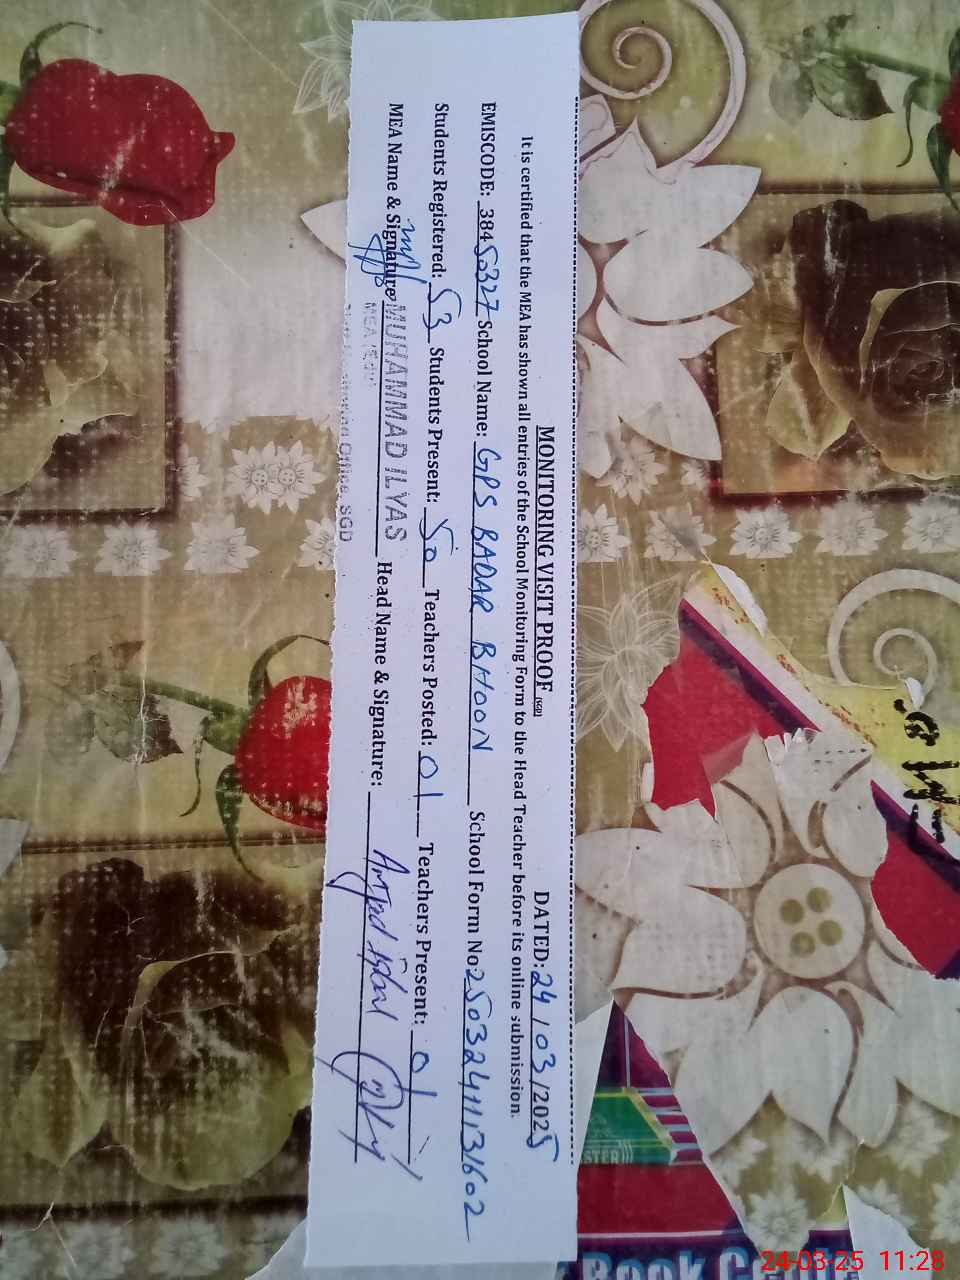 MONITORING VISIT PROOF (SGD) DATED: 24/03/2025
It is certified that the MEA has shown all entries of the School Monituring Form to the Head Teacher before its online submission.
EMISCODE: 38450327 School Name: GPS BADAR BHOON School Form No 25032411131602
Students Registered: 53 Students Present: 50 Teachers Posted: 01 Teachers Present: 01
MEA Name & Signature MUHAMMAD ILYAS Head Name & Signature: Amjad Iqbal
MEA
Office, SGD
STER
Book C
24-03-25 11:28